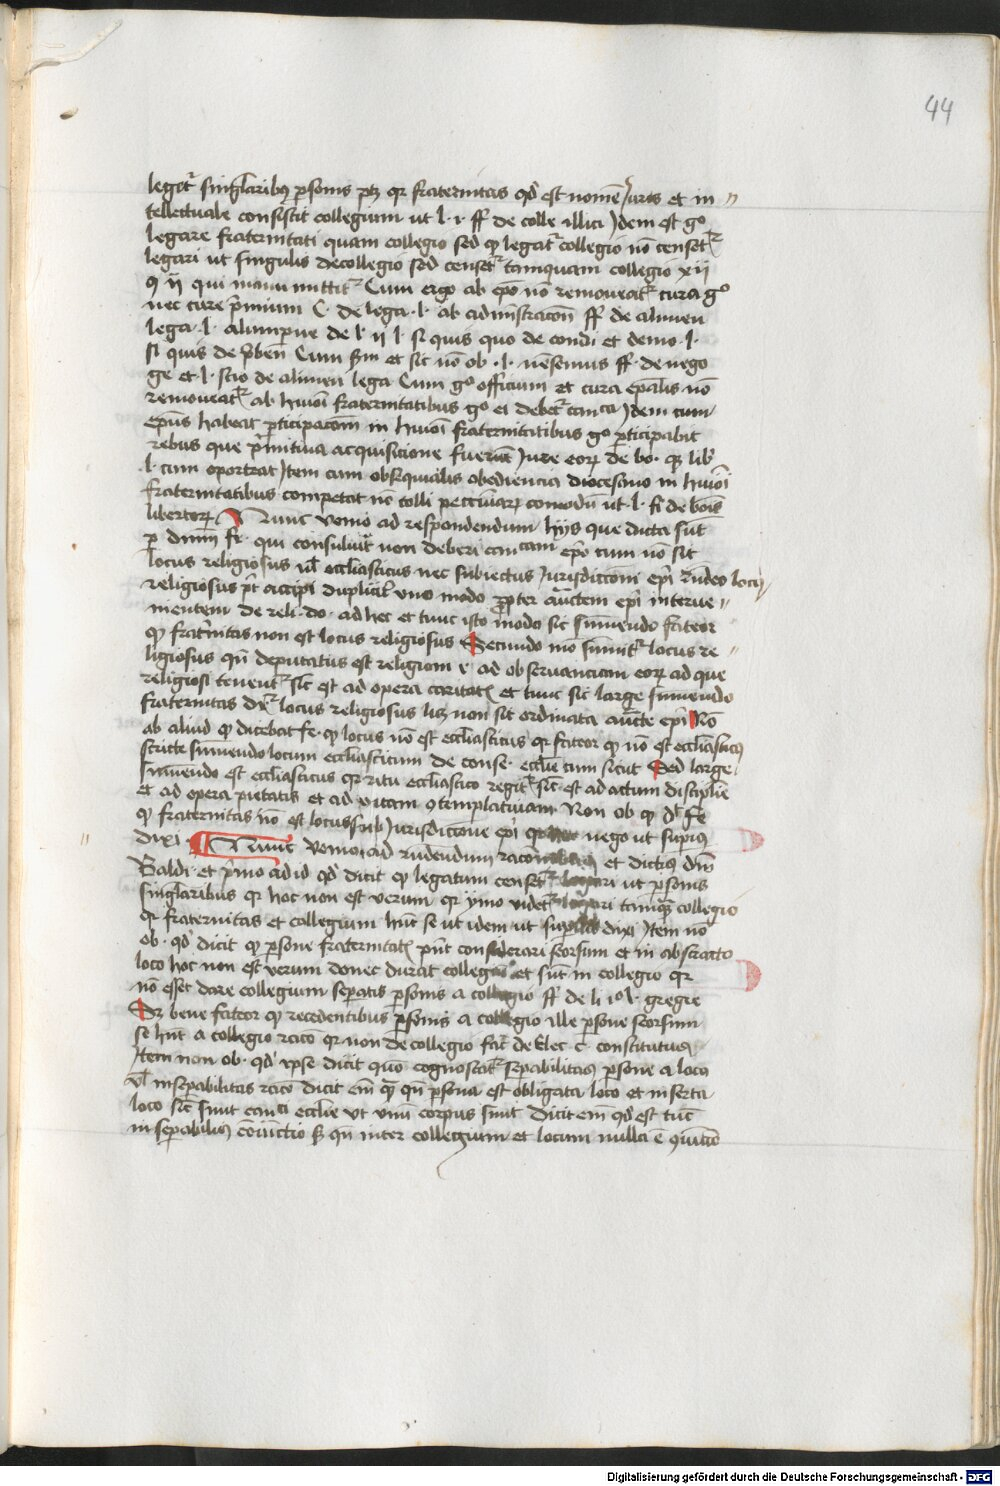 44
leget singlaribus personis ptz qr fraternitas qd est nomen iuris et in
tellectuale consistit collegium ut l. i ff de colle illici Idem est go
legare fraternitati quam collegio sed qz legatr collegio no censetr
legari ut singulis de collegio sed censetr tamquam collegio xii
q ii qui manu mittitr Cum ergo ab epo no remoueatr cura go
nec cure premium C. de lega. l. ab administracon ff de alimen
lega. l. alumpne de l. ii l. si quis quo de condi et demo. l.
si quis de Cum et sic no ob. l. nesennius ff. de nego
ge et l. scio de alimen lega Cum go officium et cura epalis no
remoueatr ab huioi fraternitatibus go ei debetr canca Idem cum
epus habeat pticipacom in huioi fraternitatibus go pticipabit
rebus que primitiua acquisicione fuerunt Iure eorz de bo. qz lib
l. cum oporteat Item cum obsequialis obediencia diocesano in huioi
fraternitatibus competat nec tolli pecuniarz comodu ut. l. fi de bonis
libertorz Nunc venio ad respondendum hys que dicta sunt
p dnum fe. qui consuluit non deberi cancam epo cum no sit
locus religiosus ul ecclesiasticus nec subiectus Iurisdictioni epi rndeo locus
religiosus pt accipi dupliciter vno modo propter auctem epi interue
nientem de reli. do. ad hec et tunc isto modo sic sumendo fateor
qz fraternitas non est locus religiosus Secundo mo sumitr locus re
ligiosus qn deputatus est religioni e. ad obseruanciam eorz ad que
religiosi tenentr sic est ad opera caritatis et tunc sic large sumendo
fraternitas dr locus religiosus licz non sit ordinata aucte epi No
ab aliud qz dicebat fe. qz locus no est ecclesiasticus qr fateor qz no est ecclesiasticus
stricte sumendo locum ecclesiasticum de conse. ecclie cum sicut Sed large
sumendo est ecclesiasticus qr ritu ecclesiastico regitr sic est ad actum discipline
et ad opera pietatis et ad vitam contemplatiuam Non ob qz d. fe
qz fraternitas no est locus sub Iurisdictione epi nego ut superius
dixi Nunc venio ad rndendum et dictis dni
Baldi. et primo ad id qd dicit qz legatum censetr legari ut personis
singlaribus qr hoc non est verum qr ymo videtr legari tamquam collegio
qr fraternitas et collegium hnt se ut idem ut supra dixi Item no
ob. qd dicit qz persone fraternitatis pnt considerari seorsum et in abstracto
loco hoc non est verum donec durat collegium et sunt in collegio qr
no esset dare collegium separatis personis a collegio ff de li l. gregie
Sz bene fateor qz recedentibus personis a collegio ille persone seorsum
se hnt a collegio racio qr non de collegio de elec c. constitutus
Item non ob. qd ipse dicit quo cognoscatr separabilitas persone a loco
ul inseparabilitas racio dicit em qz qn persona est obligata loco et inserta
loco sic sunt canci ecclie ut vnum corpus sunt dicit em qd est tunc
inseparabilis coniunctio sz qn inter collegium et locum nulla e
Digitalisierung gefördert durch die Deutsche Forschungsgemeinschaft - DFG